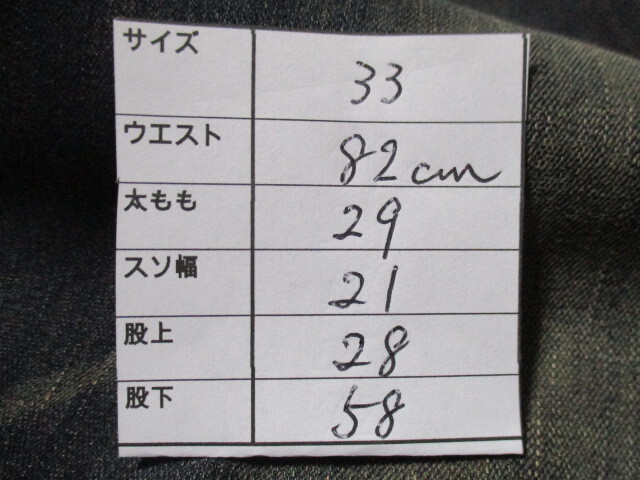 サイズ 33
ウエスト 82cm
太もも 29
スソ幅 21
股上 28
股下 58